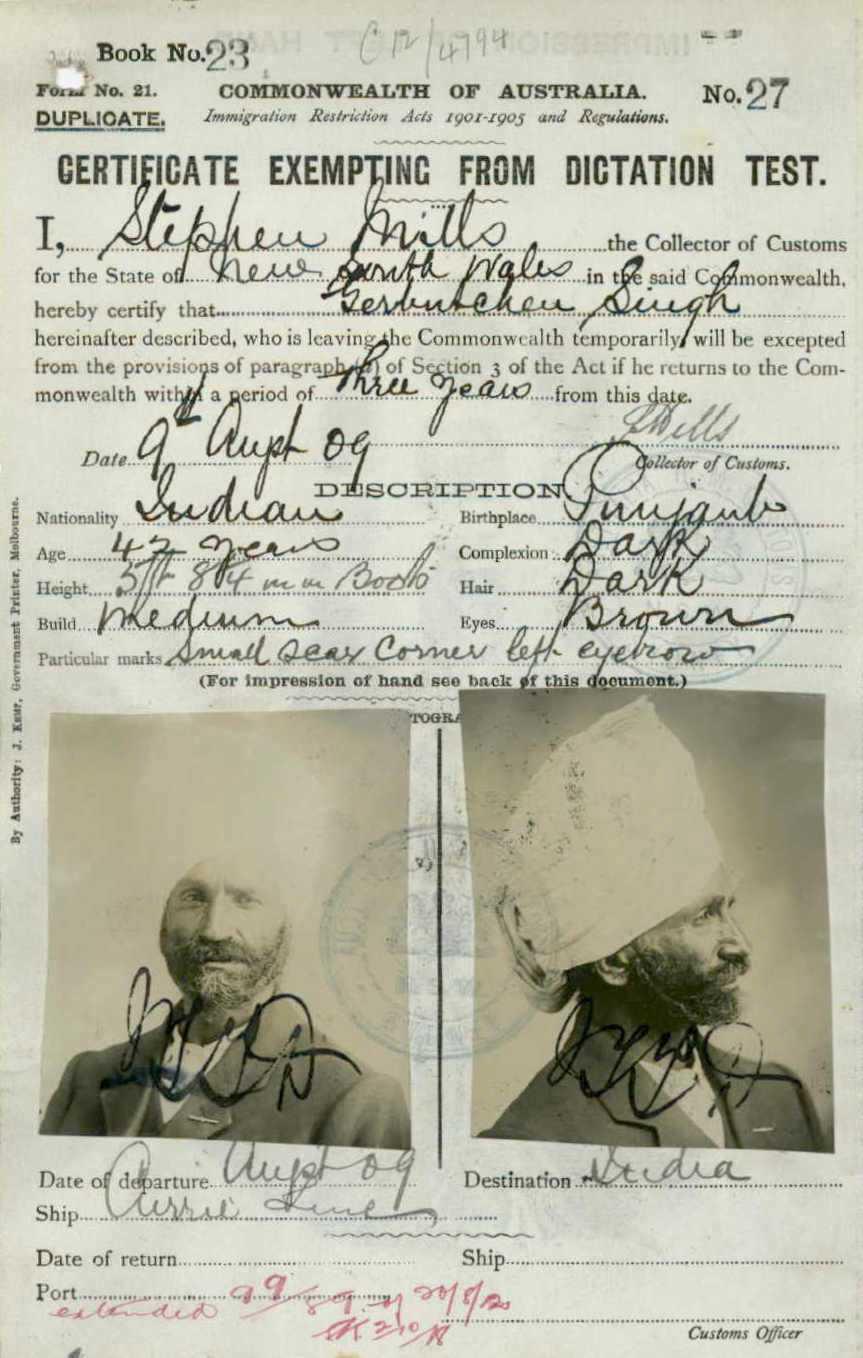 Book No. 23
C12/4794
Form No. 21.
COMMONWEALTH OF AUSTRALIA.
No. 27
DUPLICATE.
Immigration Restriction Acts 1901-1905 and Regulations.
CERTIFICATE EXEMPTING FROM DICTATION TEST.
I, Stephen Mills the Collector of Customs
for the State of New South Wales in the said Commonwealth,
hereby certify that Gerbutchen Singh
hereinafter described, who is leaving the Commonwealth temporarily, will be excepted
from the provisions of paragraph (a) of Section 3 of the Act if he returns to the Com-
monwealth within a period of Three years from this date.
SMills
Date 9th Augst 09
Collector of Customs.
DESCRIPTION
Nationality Indian
Birthplace Punjaub
Age 42 years
Complexion Dark
Height 5ft 8¼ in in Boots
Hair Dark
Build medium
Eyes Brown
Particular marks Small scar corner left eyebrow
(For impression of hand see back of this document.)
TOGRA
By Authority: J. Kemp, Government Printer, Melbourne.
Date of departure Augst 09
Destination India
Ship Currie Line
Date of return
Ship
Port
extended
20/8/12
Customs Officer